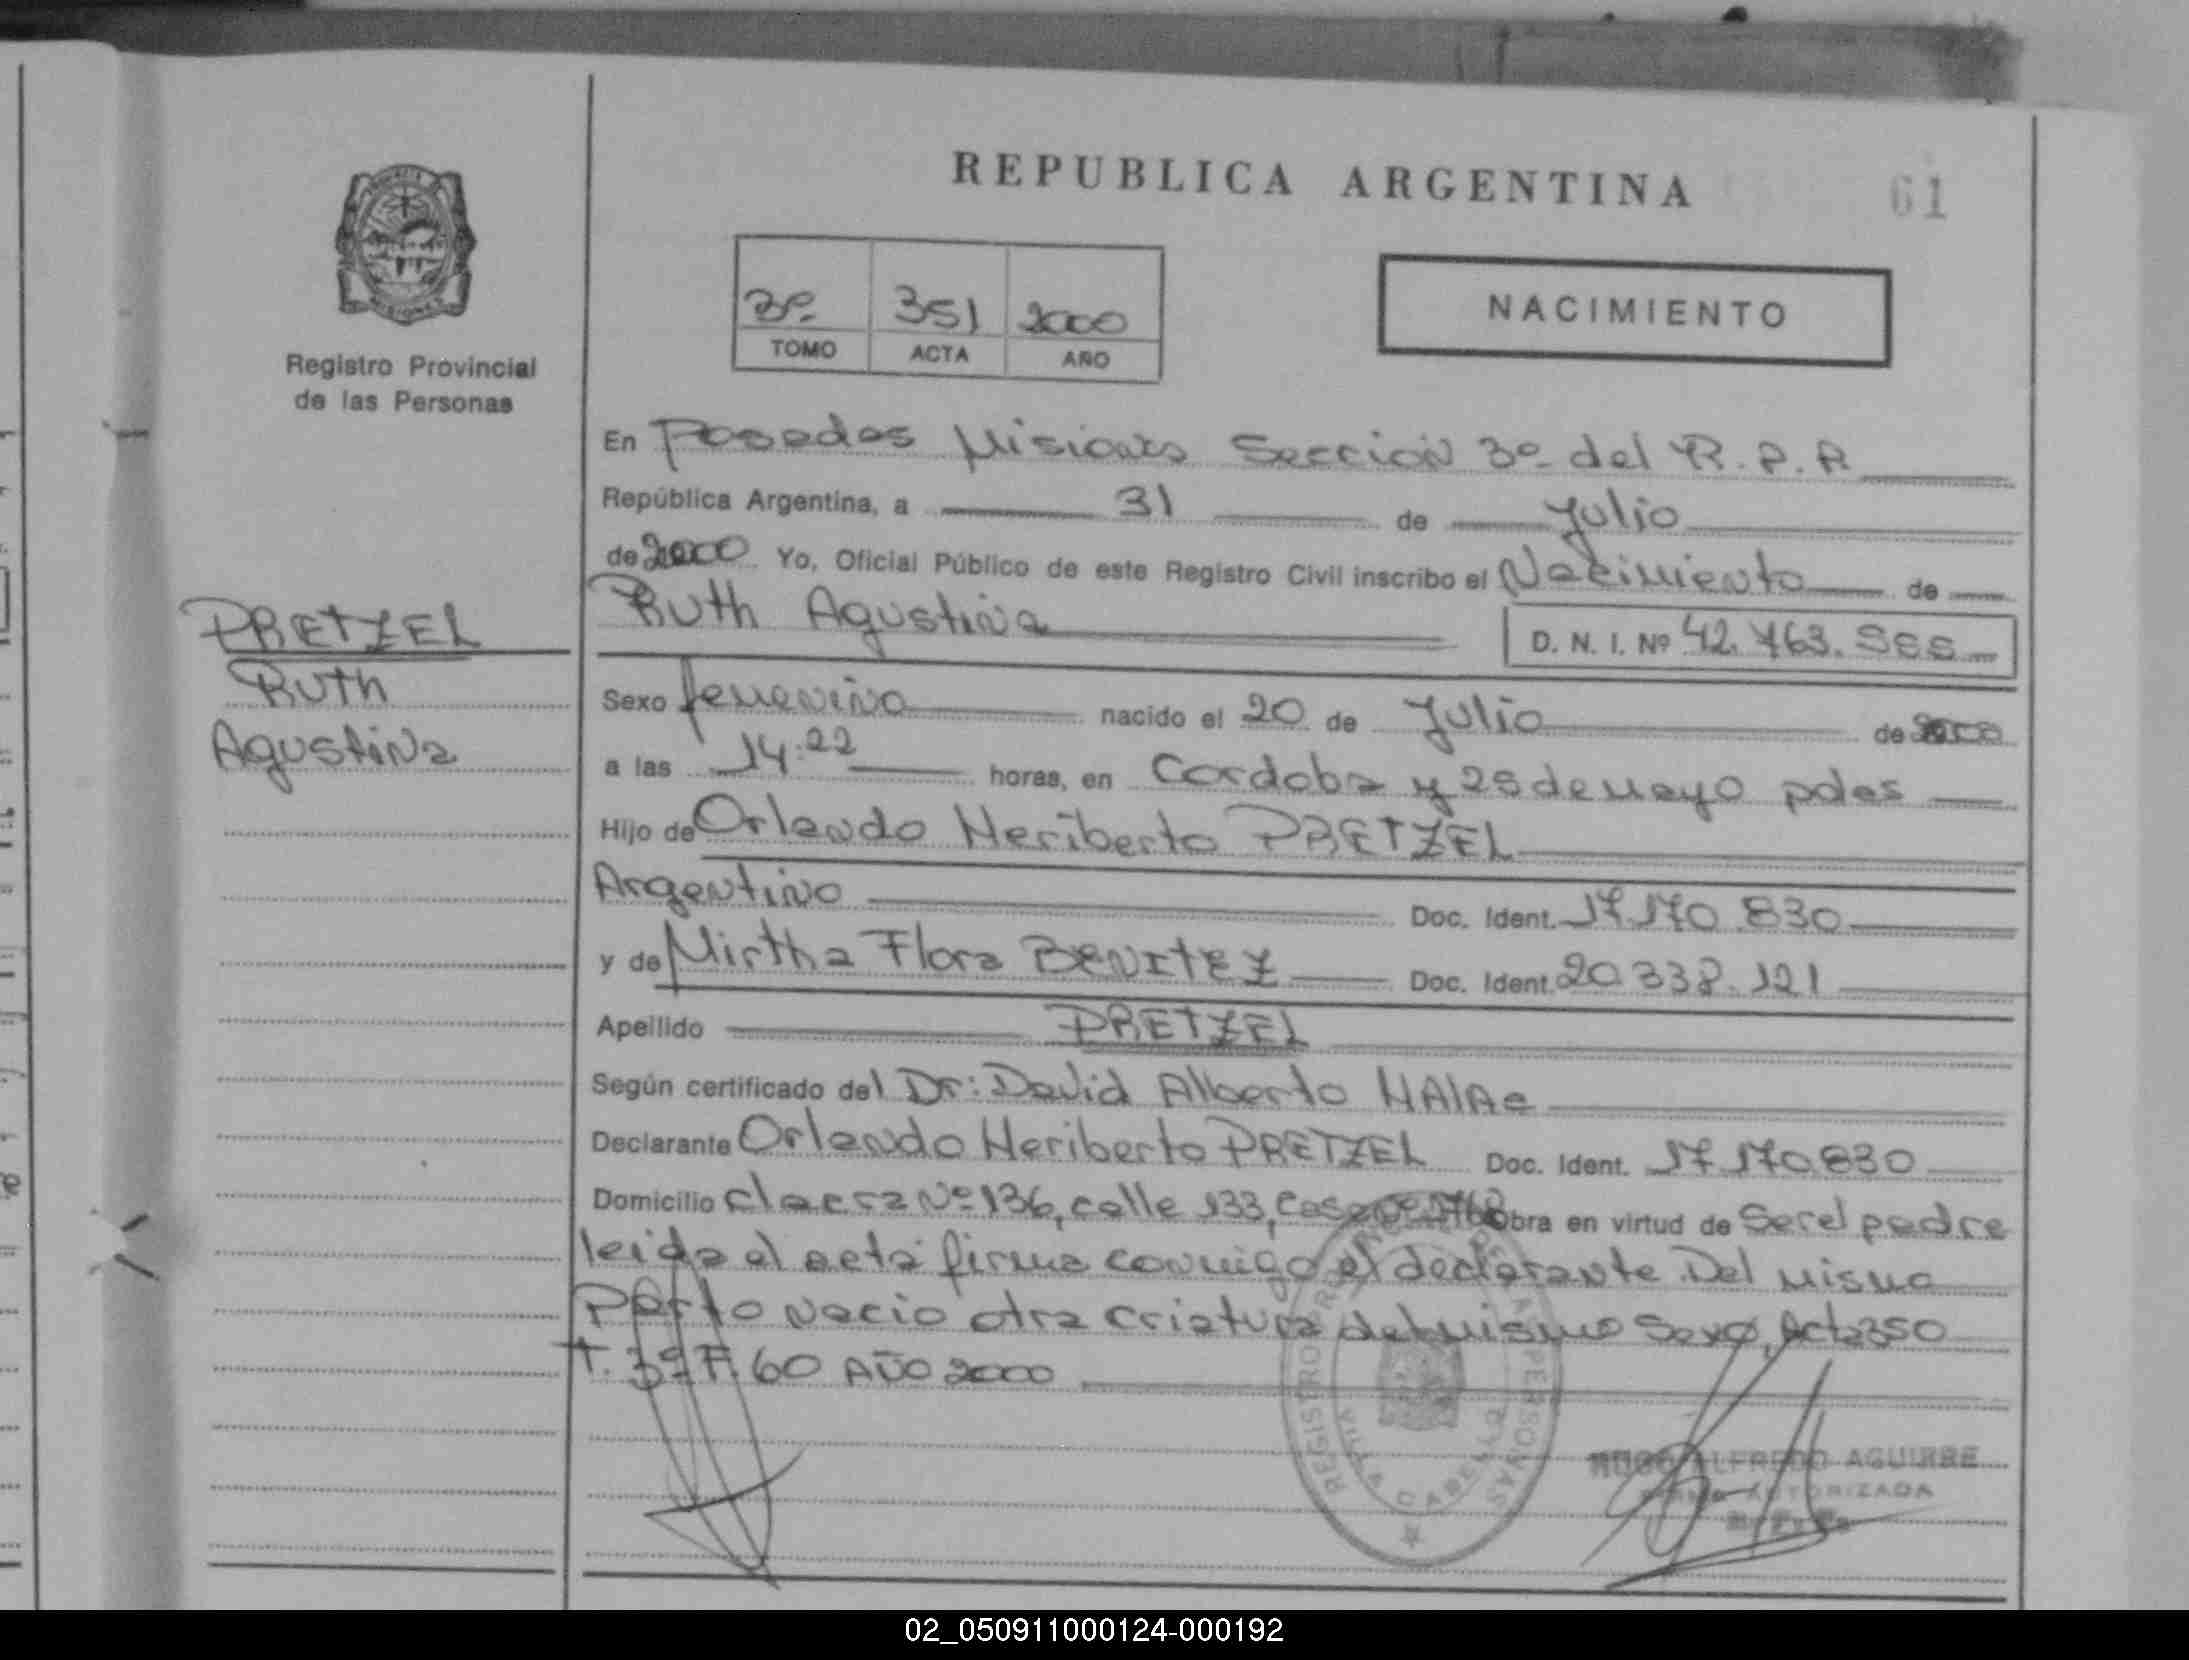 REPUBLICA ARGENTINA
61
3º 351 2000
TOMO ACTA AÑO
NACIMIENTO
MISIONES
Registro Provincial
de las Personas
PRETZEL
Ruth
Agustina
En Posadas Misiones Sección 3º del R.P.P
República Argentina, a 31 de Julio
de 2000 Yo, Oficial Público de este Registro Civil inscribo el Nacimiento de
Ruth Agustina
D. N. I. Nº 42.763.555
Sexo femenino nacido el 20 de Julio de 2000
a las 14:22 horas, en Cordoba y 25 de mayo pdas
Hijo de Orlando Heriberto PRETZEL
Argentino Doc. Ident. 17.170.830
y de Mirtha Flora BENITEZ Doc. Ident. 20.338.121
Apellido PRETZEL
Según certificado del Dr: David Alberto
Declarante Orlando Heriberto PRETZEL Doc. Ident. 17.170.830
Domicilio chacra Nº 136, calle 133, casa Obra en virtud de Ser el padre
leida el acta firma conmigo el declarante Del mismo
Parto nacio otra criatura del mismo Sexo, Acta 350
T. 3º F. 60 AÑO 2000
REGISTRO PROVINCIAL DE LAS PERSONAS
VILLA CABELLO
HUGO ALFREDO AGUIRRE
FIRMA AUTORIZADA
02_050911000124-000192